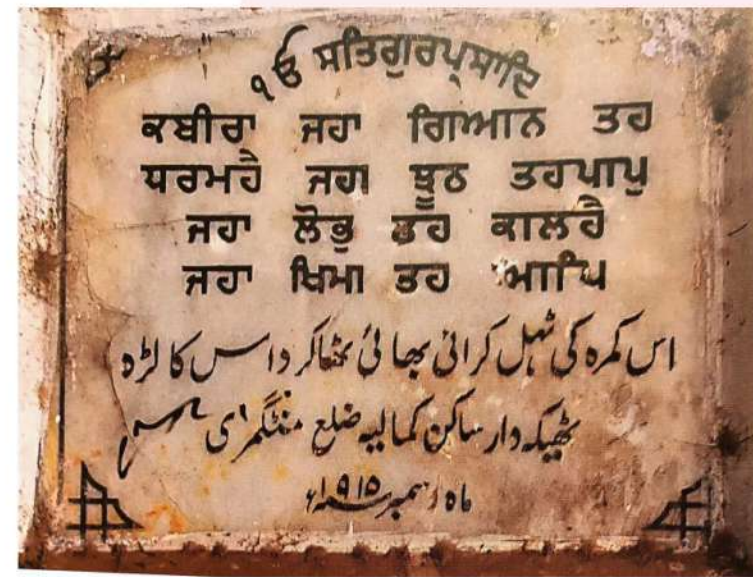 ੴ ਸਤਿਗੁਰਪ੍ਰਸਾਦਿ
ਕਬੀਰਾ ਜਹਾ ਗਿਆਨ ਤਹ
ਧਰਮਹੈ ਜਹਾ ਝੂਠ ਤਹਪਾਪੁ
ਜਹਾ ਲੋਭੁ ਤਹ ਕਾਲਹੈ
ਜਹਾ ਖਿਮਾ ਤਹ ਆਪਿ
اس کمرہ کی ٹہل کرائی بھائی ٹھاکر داس کالڑہ
ٹھیکہ دار ساکن کمالیہ ضلع منٹگمری
ماہ دسمبر ۱۹۱۵ء